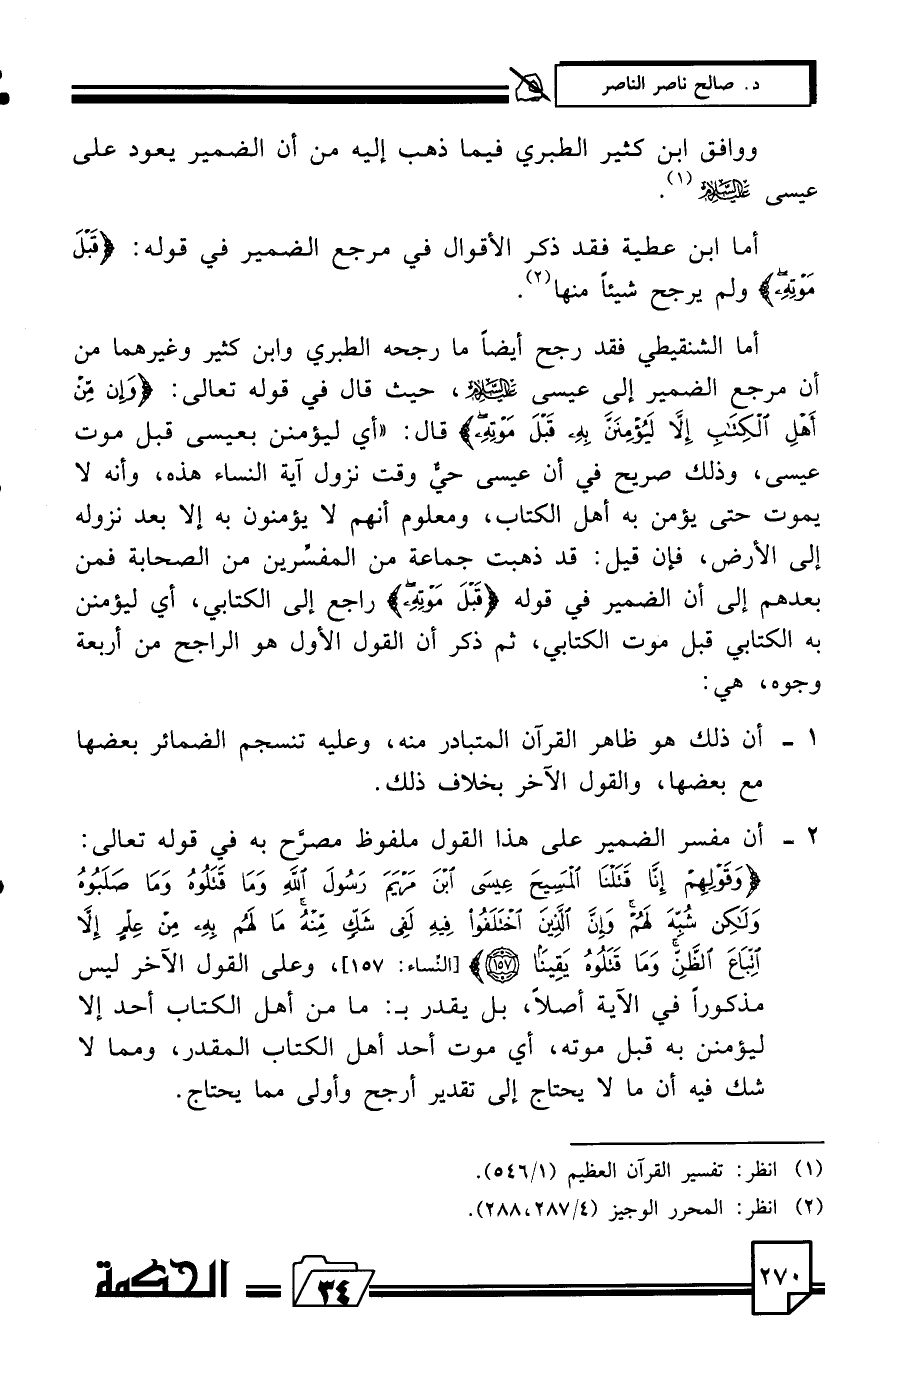 د. صالح ناصر الناصر
ووافق ابن كثير الطبري فيما ذهب إليه من أن الضمير يعود على
عيسى عليه السلام (١).
أما ابن عطية فقد ذكر الأقوال في مرجع الضمير في قوله: ﴿قَبْلَ
مَوْتِهِۦۖ﴾ ولم يرجح شيئاً منها(٢).
أما الشنقيطي فقد رجح أيضاً ما رجحه الطبري وابن كثير وغيرهما من
أن مرجع الضمير إلى عيسى عليه السلام، حيث قال في قوله تعالى: ﴿وَإِن مِّنْ
أَهْلِ ٱلْكِتَٰبِ إِلَّا لَيُؤْمِنَنَّ بِهِۦ قَبْلَ مَوْتِهِۦۖ﴾ قال: «أي ليؤمنن بعيسى قبل موت
عيسى، وذلك صريح في أن عيسى حيٌّ وقت نزول آية النساء هذه، وأنه لا
يموت حتى يؤمن به أهل الكتاب، ومعلوم أنهم لا يؤمنون به إلا بعد نزوله
إلى الأرض، فإن قيل: قد ذهبت جماعة من المفسِّرين من الصحابة فمن
بعدهم إلى أن الضمير في قوله ﴿قَبْلَ مَوْتِهِۦۖ﴾ راجع إلى الكتابي، أي ليؤمنن
به الكتابي قبل موت الكتابي، ثم ذكر أن القول الأول هو الراجح من أربعة
وجوه، هي:
١ - أن ذلك هو ظاهر القرآن المتبادر منه، وعليه تنسجم الضمائر بعضها
مع بعضها، والقول الآخر بخلاف ذلك.
٢ - أن مفسر الضمير على هذا القول ملفوظ مصرَّح به في قوله تعالى:
﴿وَقَوْلِهِمْ إِنَّا قَتَلْنَا ٱلْمَسِيحَ عِيسَى ٱبْنَ مَرْيَمَ رَسُولَ ٱللَّهِ وَمَا قَتَلُوهُ وَمَا صَلَبُوهُ
وَلَٰكِن شُبِّهَ لَهُمْۚ وَإِنَّ ٱلَّذِينَ ٱخْتَلَفُوا۟ فِيهِ لَفِى شَكٍّ مِّنْهُۚ مَا لَهُم بِهِۦ مِنْ عِلْمٍ إِلَّا
ٱتِّبَاعَ ٱلظَّنِّۚ وَمَا قَتَلُوهُ يَقِينًۢا (١٥٧)﴾ [النّساء: ١٥٧]، وعلى القول الآخر ليس
مذكوراً في الآية أصلاً، بل يقدر بـ: ما من أهل الكتاب أحد إلا
ليؤمنن به قبل موته، أي موت أحد أهل الكتاب المقدر، ومما لا
شك فيه أن ما لا يحتاج إلى تقدير أرجح وأولى مما يحتاج.
(١) انظر: تفسير القرآن العظيم (٥٤٦/١).
(٢) انظر: المحرر الوجيز (٢٨٨،٢٨٧/٤).
٢٧٠
٣٤
الحكمة